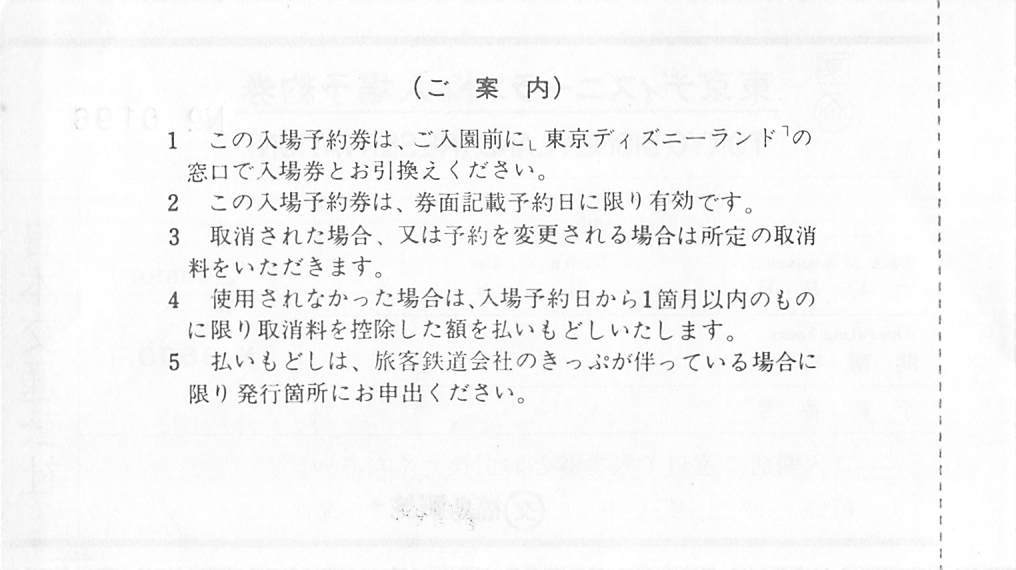 (ご案内)
1 この入場予約券は、ご入園前に「東京ディズニーランド」の
窓口で入場券とお引換えください。
2 この入場予約券は、券面記載予約日に限り有効です。
3 取消された場合、又は予約を変更される場合は所定の取消
料をいただきます。
4 使用されなかった場合は、入場予約日から1箇月以内のもの
に限り取消料を控除した額を払いもどしいたします。
5 払いもどしは、旅客鉄道会社のきっぷが伴っている場合に
限り発行箇所にお申出ください。